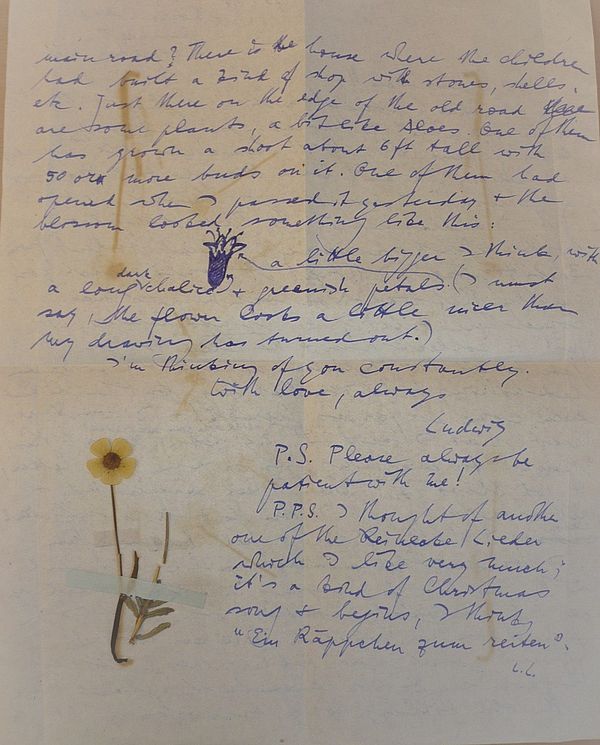 main road? There is the house where the children
had built a kind of shop with stones, shells,
etc. Just there on the edge of the old road there
are some plants, a bit like Aloes. One of them
has grown a shoot about 6 ft tall with
50 or more buds on it. One of them had
opened when I passed it yesterday & the
blossom looked something like this:
a little bigger I think, with
a long dark "chalice" & greenish petals. (I must
say, the flower looks a little nicer than
my drawing has turned out.)
I'm thinking of you constantly.
With love, always
Ludwig
P.S. Please always be
patient with me!
P.P.S. I thought of another
one of the Reinecke Lieder
which I like very much;
it's a kind of Christmas
song & begins, I think,
"Ein Räppchen zum reiten".
L.L.